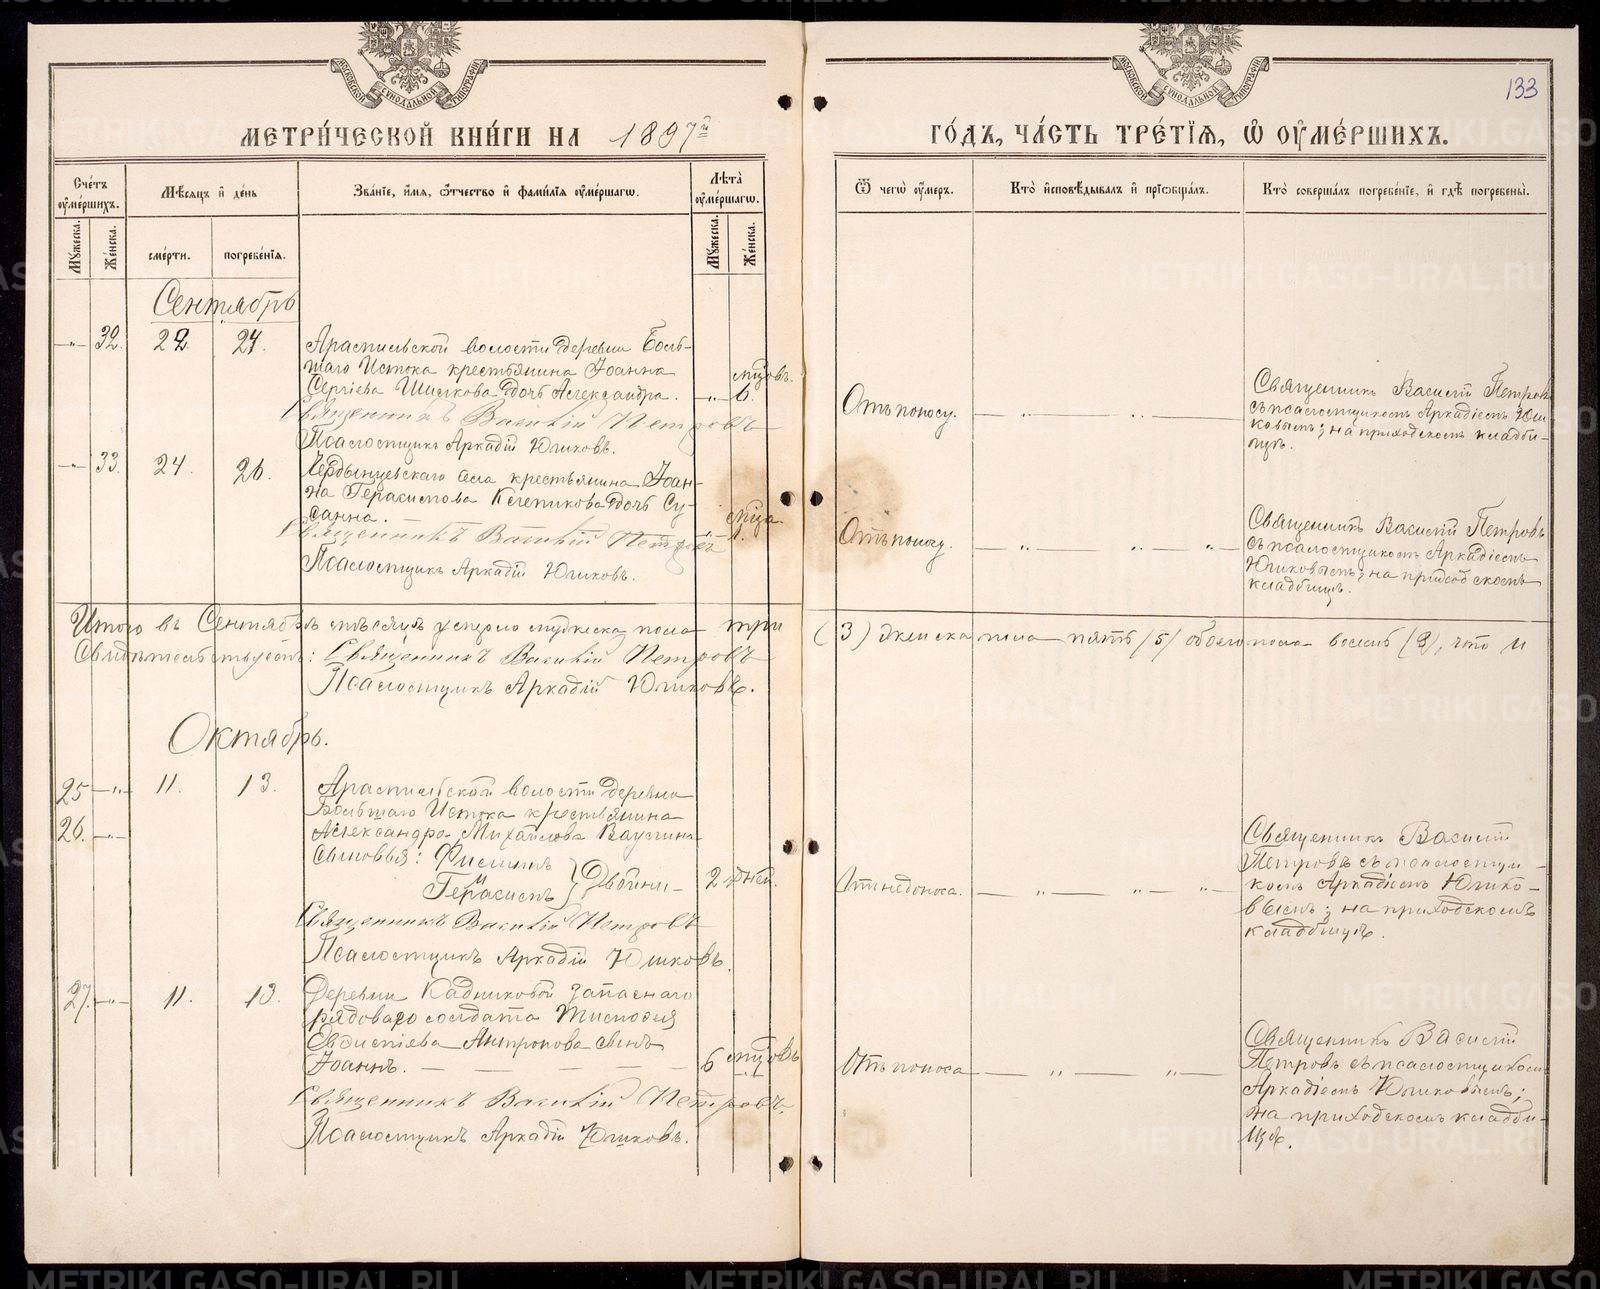 133
МОСКОВСКОЙ СѴНОДАЛЬНОЙ ТИПОГРАФІИ
МОСКОВСКОЙ СѴНОДАЛЬНОЙ ТИПОГРАФІИ
МЕТРИ́ЧЕСКОЙ КНИ́ГИ НА 1897й
ГО́ДЪ, ЧА́СТЬ ТРЕ́ТІЯ, Ѿ ОУМЕ́РШИХЪ.
Сче́тъ оуме́ршихъ.
Мужеска.
Же́нска.
Мѣ́сяцъ и де́нь
сме́рти.
погребе́нія.
Зва́ніе, и́мя, ѻ́тчество и фами́лія оуме́ршагѡ.
Лѣ́та оуме́ршагѡ.
Мужеска.
Же́нска.
Ѿ чегѡ̀ оу́меръ.
Кто̀ исповѣ́дывалъ и пріѡбща́лъ.
Кто̀ соверша́лъ погребе́ніе, и гдѣ̀ погребены̀.
Сентябрь
-„- 32. 22. 24. Арамильской волости деревни Боль-
шаго Истока крестьянина Іоанна
Сергіева дочь Александра. -„- 6. мцовъ.
Священникъ Василій Петровъ
Псаломщикъ Аркадій Юшковъ.
Отъ поносу. — „ — „ —
Священникъ Василій Петровъ
съ псаломщикомъ Аркадіемъ Юш-
ковымъ; на приходскомъ кладби-
щѣ.
-„- 33. 24. 26. села крестьянина Іоан-
на Герасимова дочь Су-
санна. — мца 1.
Священникъ Василій Петровъ
Псаломщикъ Аркадій Юшковъ.
Отъ поносу. — „ — „ — „ —
Священникъ Василій Петровъ
съ псаломщикомъ Аркадіемъ
Юшковымъ; на приходскомъ
кладбищѣ.
Итого въ Сентябрѣ мѣсяцѣ умерло мужеска пола три (3) женска пола пять (5) обоего пола восемь (8), что и
Свидѣтельствуемъ: Священникъ Василій Петровъ
Псаломщикъ Аркадій Юшковъ.
Октябрь.
25 -„- 11. 13. Арамильской волости деревни
Большаго Истока крестьянина
26. -„- Александра Михайлова
сыновья: Филиппъ
и Герасимъ } Двойни — 2 дней.
Священникъ Василій Петровъ
Псаломщикъ Аркадій Юшковъ.
Отъ недоноса. — „ — „ — „ —
Священникъ Василій
Петровъ съ псаломщи-
комъ Аркадіемъ Юшко-
вымъ; на приходскомъ
кладбищѣ.
27. -„- 11. 13. Деревни Кадниковой запаснаго
рядоваго солдата Тимофея
Антропова сынъ
Іоаннъ. — — — — — 6 мцовъ
Священникъ Василій Петровъ.
Псаломщикъ Аркадій Юшковъ.
Отъ поноса — „ — „ —
Священникъ Василій
Петровъ съ псаломщикомъ
Аркадіемъ Юшковымъ;
на приходскомъ кладби-
щѣ.
METRIKI.GASO-URAL.RU